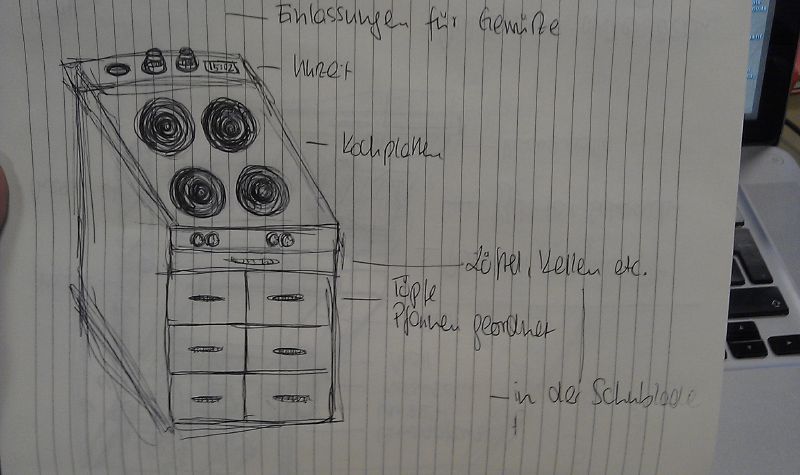 Einlassungen für Gewürze
15:02
Uhrzeit
Kochplatten
Löffel, Kellen etc.
Töpfe
Pfannen geordnet
in der Schublade